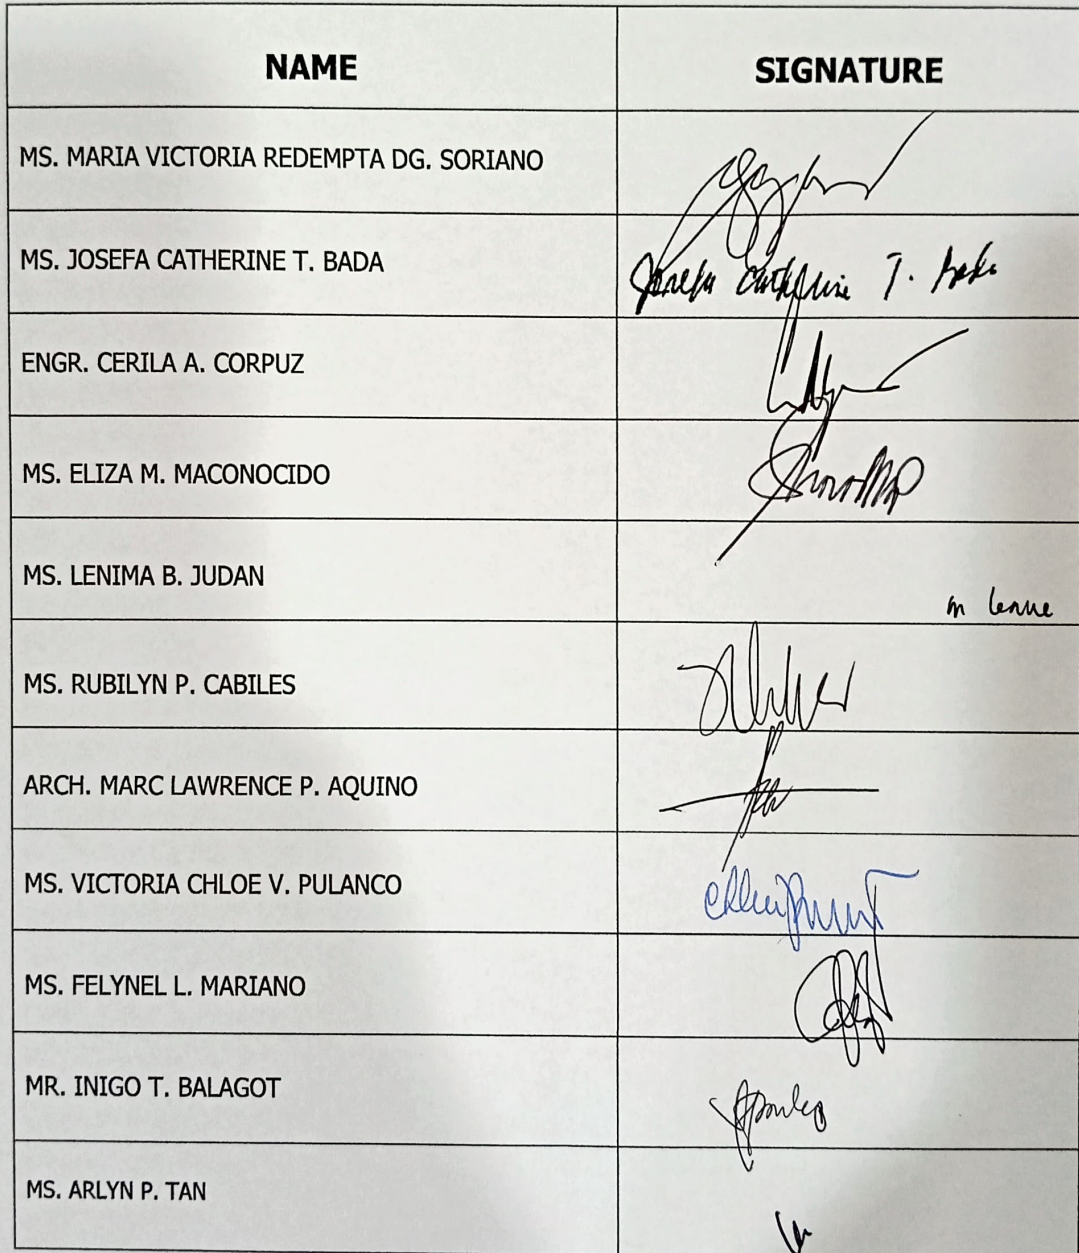 NAME SIGNATURE
MS. MARIA VICTORIA REDEMPTA DG. SORIANO
MS. JOSEFA CATHERINE T. BADA Josefa Catherine T. Bada
ENGR. CERILA A. CORPUZ
MS. ELIZA M. MACONOCIDO
MS. LENIMA B. JUDAN on leave
MS. RUBILYN P. CABILES
ARCH. MARC LAWRENCE P. AQUINO
MS. VICTORIA CHLOE V. PULANCO
MS. FELYNEL L. MARIANO
MR. INIGO T. BALAGOT
MS. ARLYN P. TAN